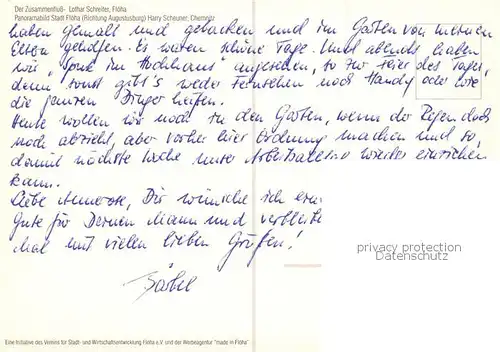 Der Zusammenfluß- Lothar Schreiter, Flöha
Panoramabild Stadt Flöha (Richtung Augustusburg) Harry Scheuner, Chemnitz
haben gemalt und gebacken und im Garten von meinen
Eltern geholfen. Es waren schöne Tage. Und abends haben
wir „ im Hochhaus" angesehen, so zur Feier des Tages,
denn sonst gibt's weder Fernsehen noch Handy oder wie
die ganzen Dinger heißen.
Heute wollen wir noch in den Garten, wenn der Regen doch
noch abzieht, aber vorher hier Ordnung machen und so,
damit nächste Woche unser wieder einziehen
kann.
Liebe Annerose, Dir wünsche ich
Gute für Deinen Mann und verbleibe
mal mit vielen lieben Grüßen!
Bärbel
privacy protection
Datenschutz
Eine Initiative des Vereins für Stadt- und Wirtschaftsentwicklung Flöha e.V. und der Werbeagentur "made in Flöha"